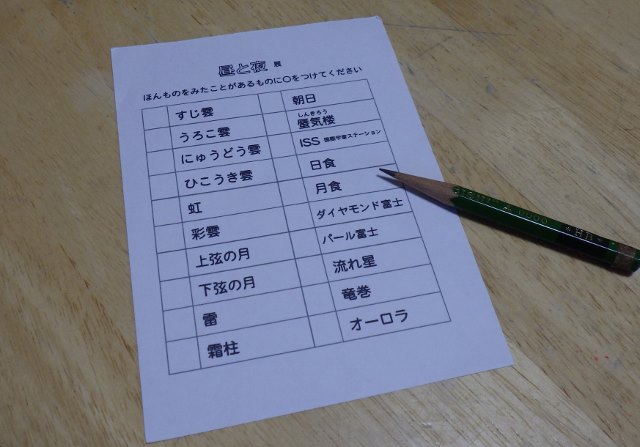 昼と夜 展
ほんものをみたことがあるものに〇をつけてください
すじ雲
うろこ雲
にゅうどう雲
ひこうき雲
虹
彩雲
上弦の月
下弦の月
雷
霜柱
朝日
しんきろう
蜃気楼
ISS 国際宇宙ステーション
日食
月食
ダイヤモンド富士
パール富士
流れ星
竜巻
オーロラ